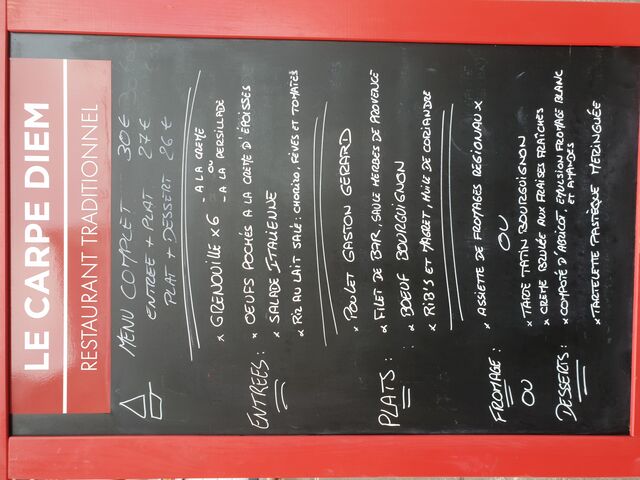 LE CARPE DIEM
RESTAURANT TRADITIONNEL
MENU COMPLET 30€
ENTREE + PLAT 27€
PLAT + DESSERT 26€
x GRENOUILLE x6 - A LA CREME
OU
- A LA PERSILLADE
ENTREES : x OEUFS POCHÉS A LA CREME D'ÉPOISSES
x SALADE ITALIENNE
x RIZ AU LAIT SALÉ : CHORIZO, FÈVES ET TOMATES
x POULET GASTON GERARD
PLATS : x FILET DE BAR, SAUCE HERBES DE PROVENCE
x BOEUF BOURGUIGNON
x RIB'S ET MAGRET, HUILE DE CORIANDRE
FROMAGE : x ASSIETTE DE FROMAGES REGIONAUX x
OU OU
x TARTE TATIN BOURGUIGNON
DESSERTS : x CRÈME BRULÉE AUX FRAISES FRAÎCHES
x COMPOTÉ D'ABRICOT, EMULSION FROMAGE BLANC
ET AMANDES
x TARTELETTE PASTÈQUE MERINGUÉE